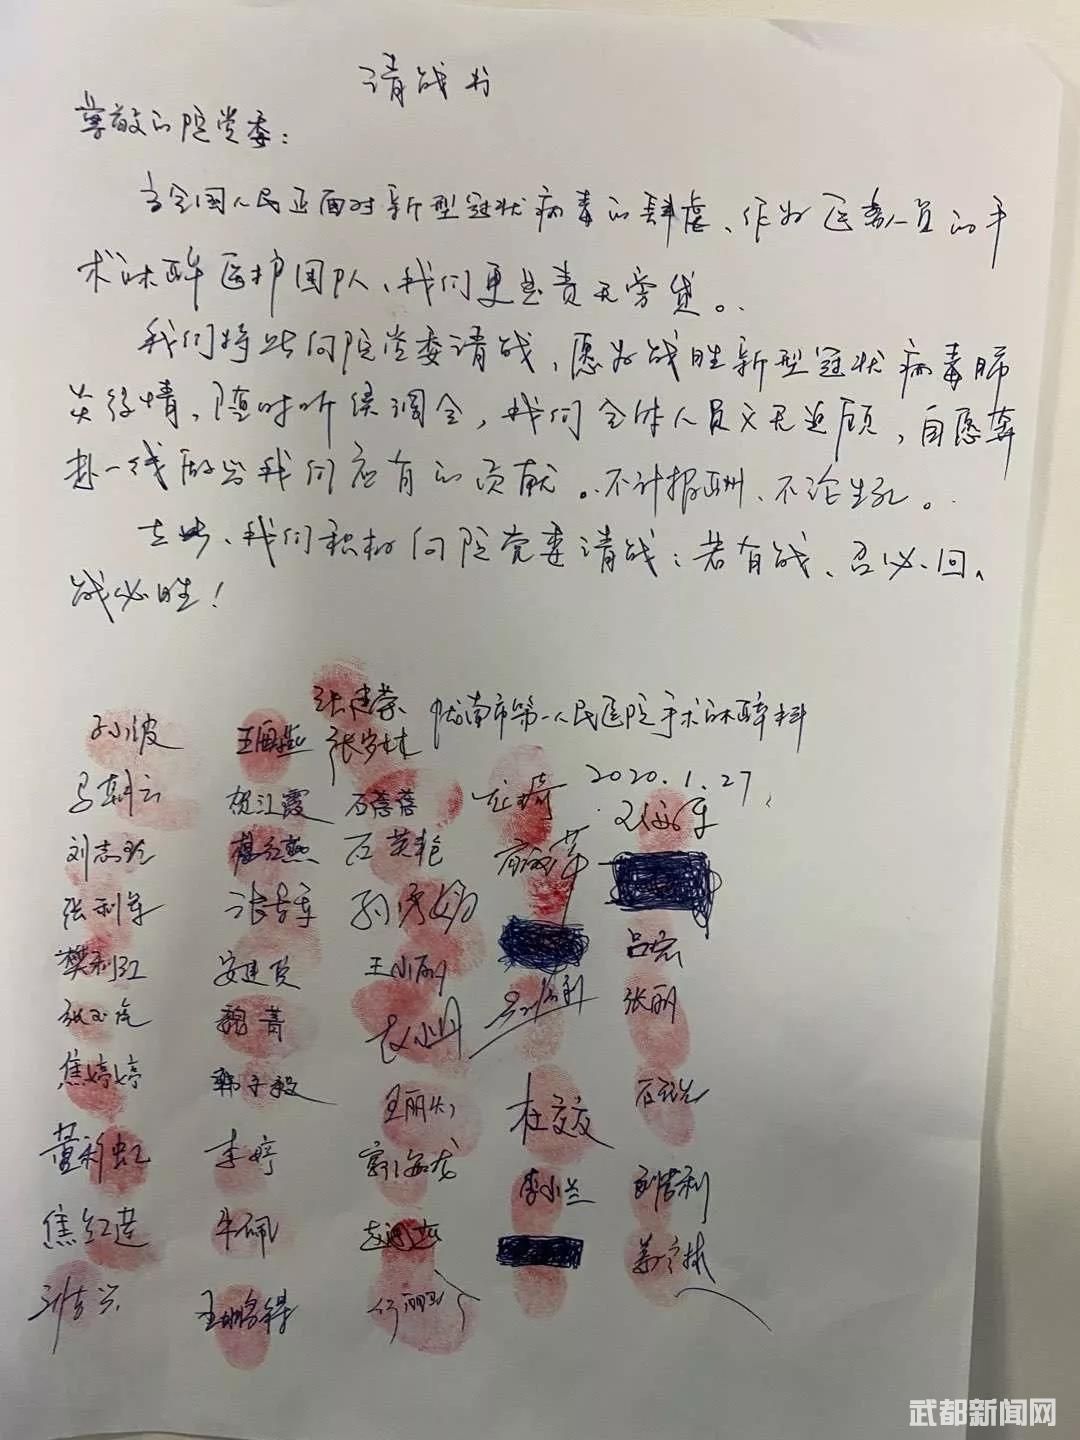 请战书
尊敬的院党委：
当全国人民正面对新型冠状病毒的肆虐、作为医务人员的手
术麻醉医护团队、我们更是责无旁贷。
我们特此向院党委请战、愿为战胜新型冠状病毒肺
炎疫情、随时听候调令，我们全体人员义无返顾，自愿奔
赴一线做出我们应有的贡献。不计报酬、不论生死。
在此、我们积极向院党委请战：若有战、召必回、
战必胜！
张建荣 陇南市第一人民医院手术麻醉科
孙小波 王国燕 张岁林
2020.1.27
马朝云 贺江霞 石蓓蓓
刘志玲 石英艳
张利军 张吉军
樊利红 安建设 王小丽 吕宏
魏菁 赵小丹 张丽
焦婷婷 韩子毅
董彩虹 李婷 郭海龙 杜文友
焦红莲 牛佩 李小兰
王鹏锦
武都新闻网